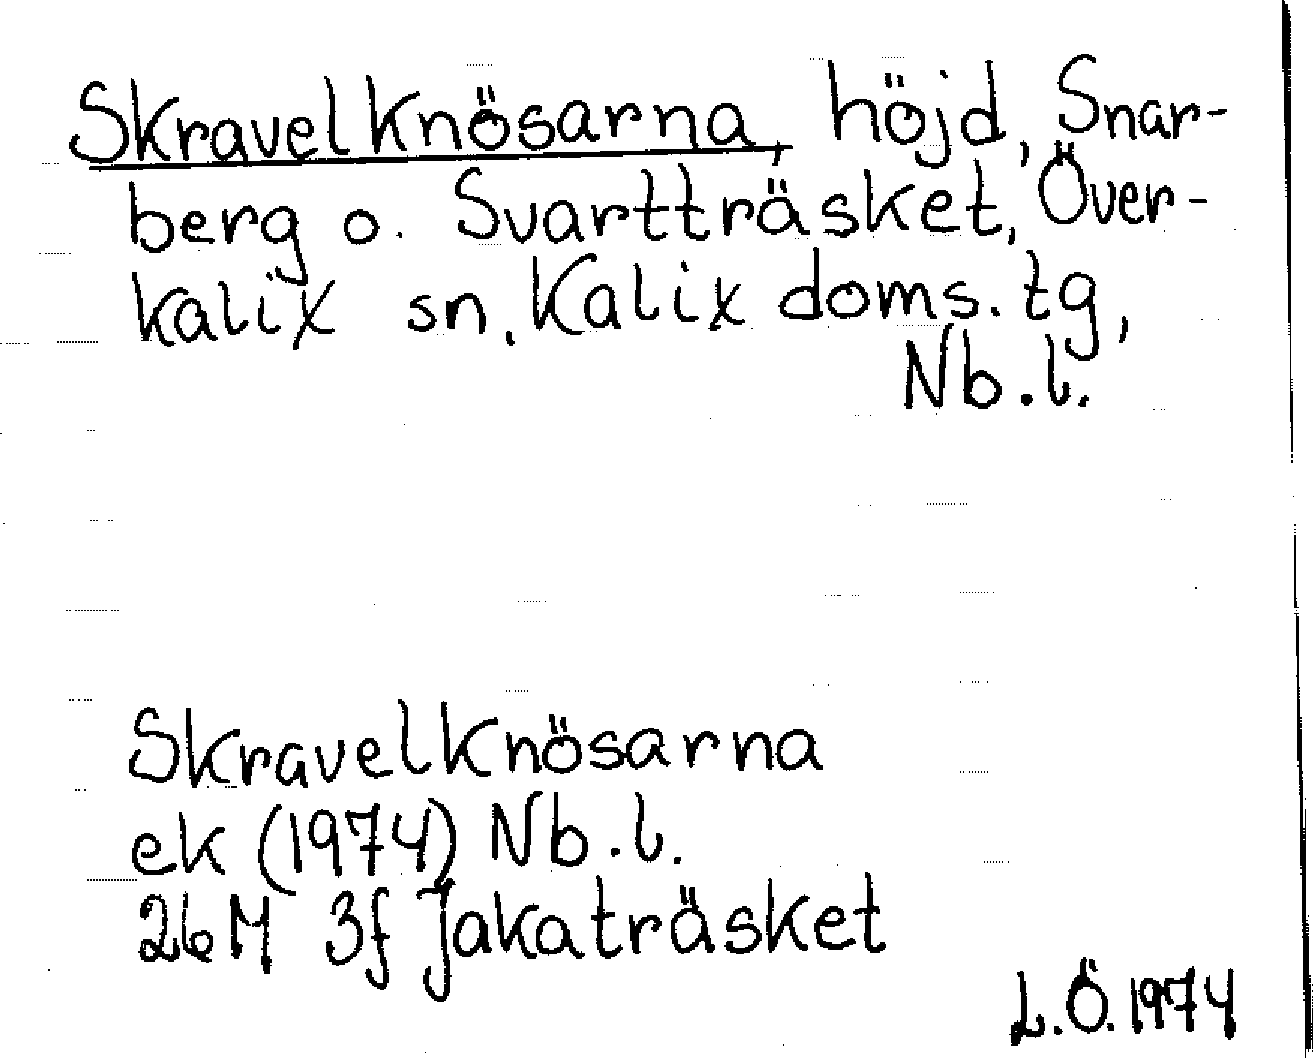 Skravelknösarna, höjd, Snar-
berg o. Svartträsket, Över-
kalix sn, Kalix doms. tg,
Nb.l.
Skravelknösarna
ek (1974) Nb.l.
26M 3f Jakaträsket
L.Ö. 1974